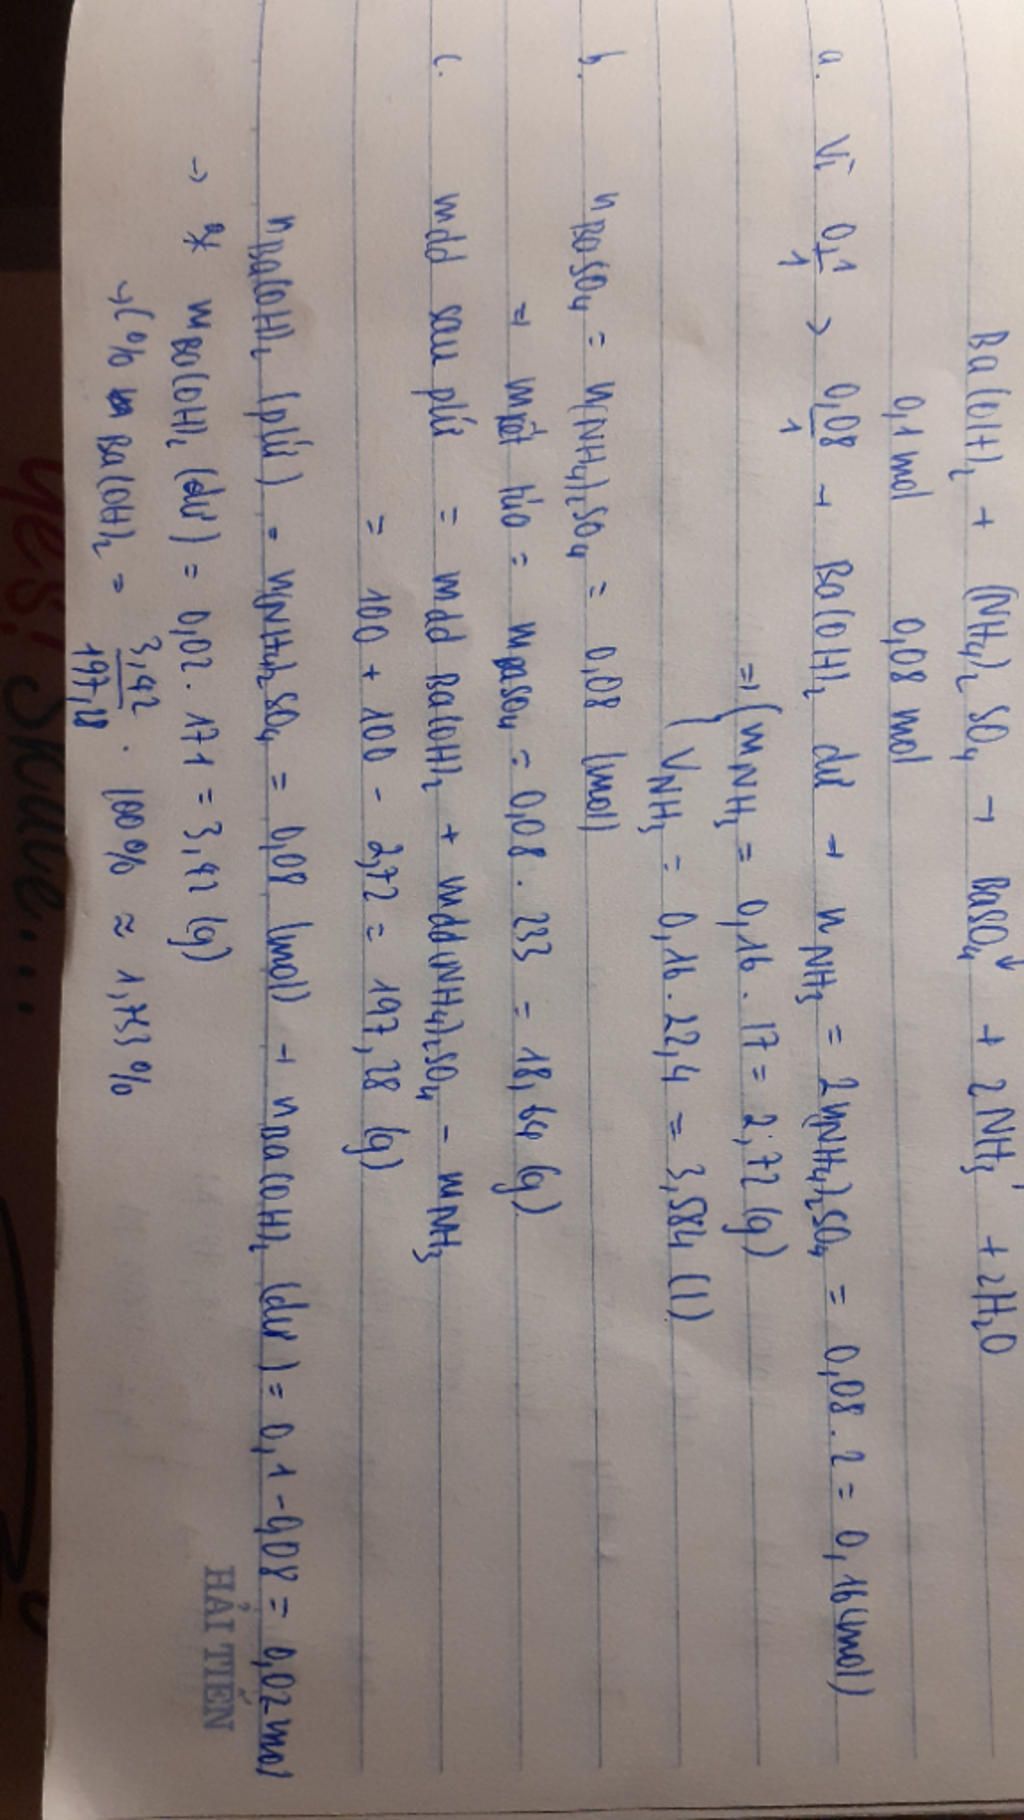 Ba(OH)₂ + (NH₄)₂SO₄ → BaSO₄↓ + 2NH₃ + 2H₂O
0,1 mol 0,08 mol
a. Vì 0,1/1 > 0,08/1 → Ba(OH)₂ dư → nNH₃ = 2n(NH₄)₂SO₄ = 0,08 . 2 = 0,16 (mol)
=> { mNH₃ = 0,16 . 17 = 2,72 (g)
VNH₃ = 0,16 . 22,4 = 3,584 (l)
b. nBaSO₄ = n(NH₄)₂SO₄ = 0,08 (mol)
=> mkết tủa = mBaSO₄ = 0,08 . 233 = 18,64 (g)
c. mdd sau pứ = mdd Ba(OH)₂ + mdd(NH₄)₂SO₄ - mNH₃
= 100 + 100 - 2,72 = 197,28 (g)
nBa(OH)₂ (pứ) = n(NH₄)₂SO₄ = 0,08 (mol) → nBa(OH)₂ (dư) = 0,1 - 0,08 = 0,02 mol
→ mBa(OH)₂ (dư) = 0,02 . 171 = 3,42 (g)
→ C% Ba(OH)₂ = 3,42/197,28 . 100% ≈ 1,733%
HẢI TIẾN
Yes!